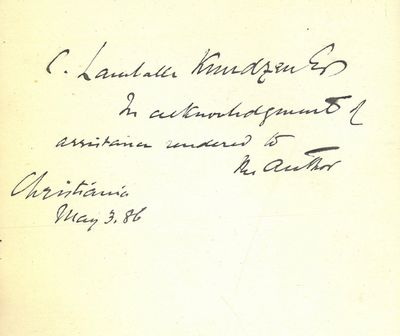 C. Lamballe Knudzen Esq
In acknowledgment of
assistance rendered to
the Author
Christiania
May 3. 86